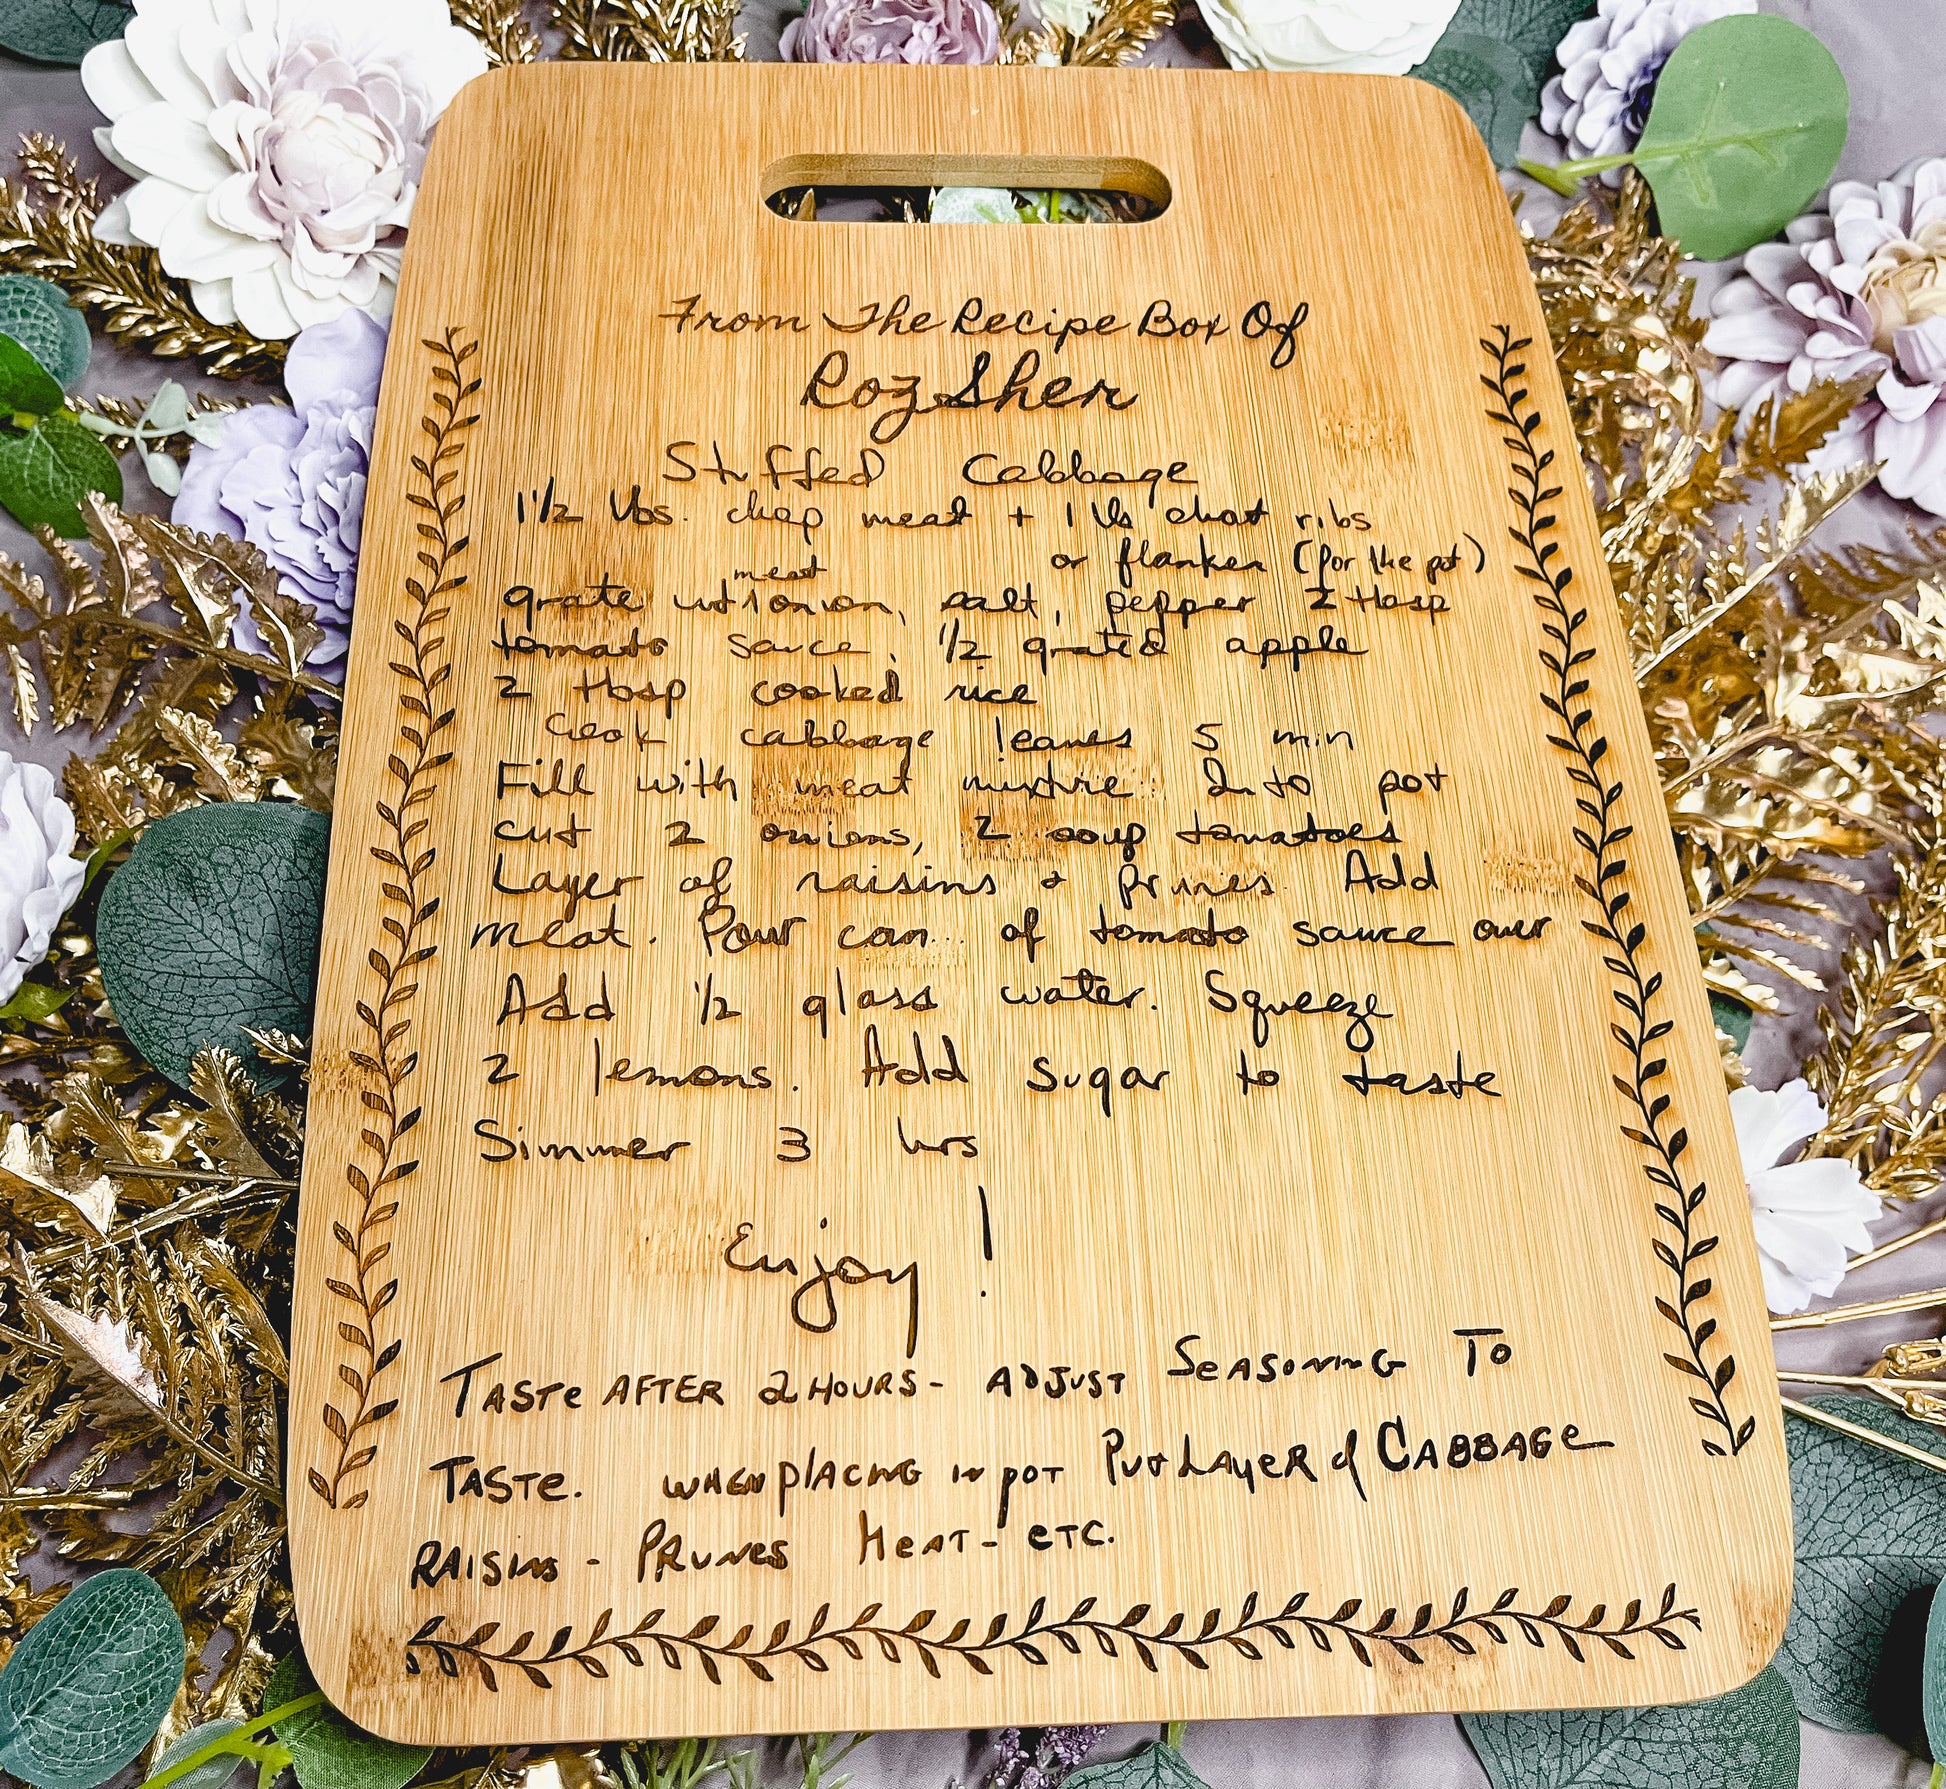 From The Recipe Box Of
Roz Sher
Stuffed Cabbage
1 1/2 lbs. chop meat + 1 lb short ribs
or flanken (for the pot)
meat
grate into 1 onion, salt, pepper 2 tbsp
tomato sauce, 1/2 grated apple
2 tbsp cooked rice
Cook cabbage leaves 5 min
Fill with meat mixture Into pot
cut 2 onions, 2 soup tomatoes
Layer of raisins + prunes. Add
meat. Pour can of tomato sauce over
Add 1/2 glass water. Squeeze
2 lemons. Add sugar to taste
Simmer 3 hrs
Enjoy!
TASTE AFTER 2 HOURS - ADJUST SEASONING TO
TASTE. WHEN PLACING IN POT PUT LAYER of CABBAGE
RAISINS - PRUNES MEAT - ETC.